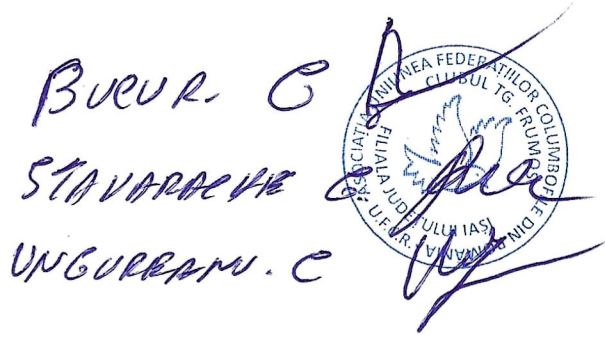 BUCUR. C
STAVARACHE C
UNGUREANU. C
ASOCIAȚIA UNIUNEA FEDERAȚIILOR COLUMBOFILE DIN ROMANIA
CLUBUL TG. FRUMOS
FILIALA JUDEȚULUI IAȘI
U.F.C.R.